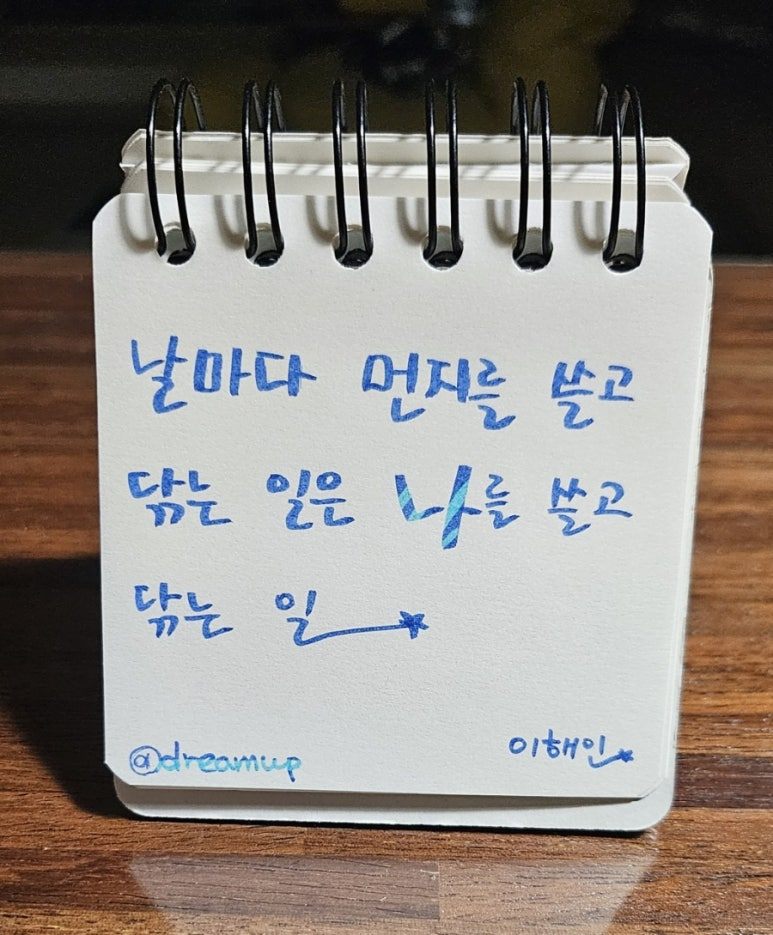 날마다 먼지를 쓸고
닦는 일은 나를 쓸고
닦는 일
이해인
@dreamup